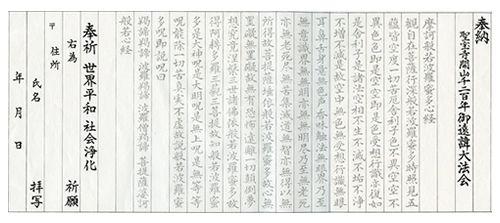 奉納
聖宝寺開山千二百年御遠諱大法会
摩訶般若波羅蜜多心経
観自在菩薩行深般若波羅蜜多時照見五
蘊皆空度一切苦厄舎利子色不異空空不
異色色即是空空即是色受想行識亦復如
是舎利子是諸法空相不生不滅不垢不浄
不増不減是故空中無色無受想行識無眼
耳鼻舌身意無色声香味触法無眼界乃至
無意識界無無明亦無無明尽乃至無老死
亦無老死尽無苦集滅道無智亦無得以無
所得故菩提薩埵依般若波羅蜜多故心無
罣礙無罣礙故無有恐怖遠離一切顛倒夢
想究竟涅槃三世諸仏依般若波羅蜜多故
得阿耨多羅三藐三菩提故知般若波羅蜜
多是大神呪是大明呪是無上呪是無等等
呪能除一切苦真実不虚故説般若波羅蜜
多呪即説呪曰
羯諦羯諦 波羅羯諦 波羅僧羯諦 菩提薩婆訶
般若心経
奉祈 世界平和 社会浄化
右為 祈願
〒 住所
氏名 拝写
年 月 日